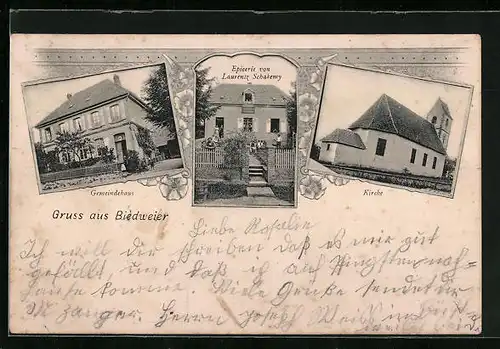 Epicerie von
Laurentz Schakemy
Gemeindehaus
Kirche
Gruss aus Biedweier
Liebe Rosalie
Ich will dir schreiben daß es mir gut
gefällt, und daß ich auf Pfingsten nach
Hause komme. Viele Grüße sendet dir
Herrn Joseph Weiss in